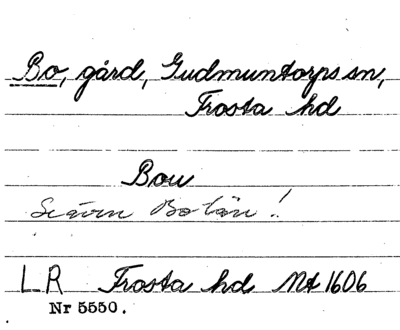 Bo, gård, Gudmuntorps sn,
Frosta hd
Bou
Se även Bolön!
LR Frosta hd Nt 1606
Nr 5550.